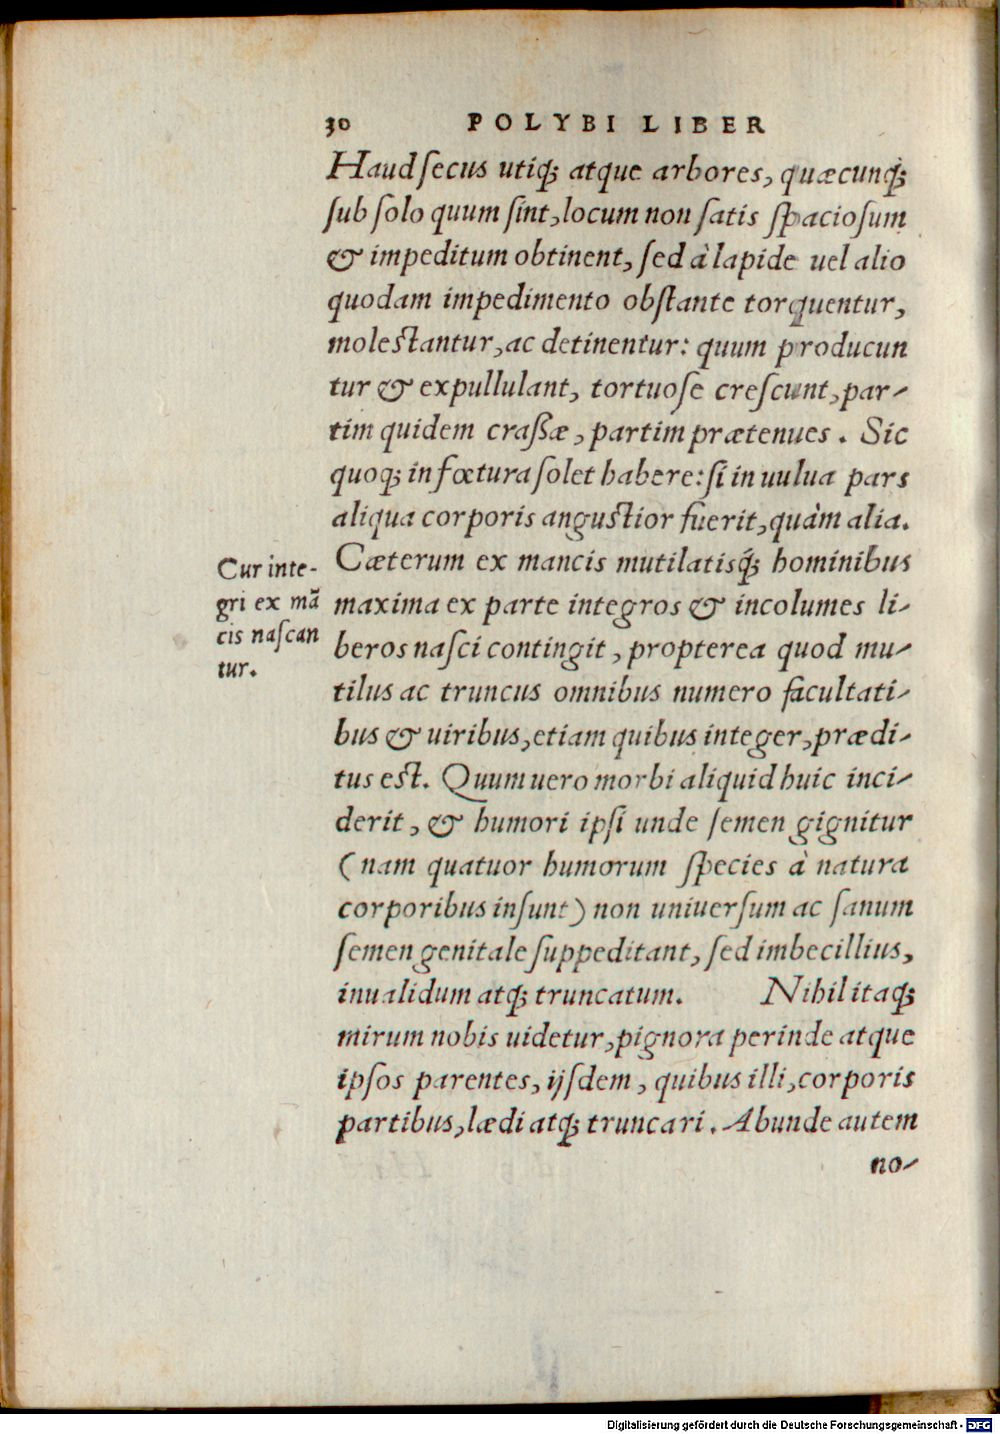 30 POLYBI LIBER
Haud ſecus utiqꝫ atque arbores, quæcunqꝫ
ſub ſolo quum ſint, locum non ſatis ſpacioſum
& impeditum obtinent, ſed à lapide uel alio
quodam impedimento obſtante torquentur,
moleſtantur, ac detinentur: quum producun
tur & expullulant, tortuoſe creſcunt, par-
tim quidem craſſæ, partim prætenues. Sic
quoqꝫ in fœtura ſolet habere: ſi in uulua pars
aliqua corporis anguſtior fuerit, quàm alia.
Cæterum ex mancis mutilatisqꝫ́ hominibus
maxima ex parte integros & incolumes li-
beros naſci contingit, propterea quod mu-
tilus ac truncus omnibus numero facultati-
bus & uiribus, etiam quibus integer, prædi-
tus eſt. Quum uero morbi aliquid huic inci-
derit, & humori ipſi unde ſemen gignitur
(nam quatuor humorum ſpecies à natura
corporibus inſunt) non uniuerſum ac ſanum
ſemen genitale ſuppeditant, ſed imbecillius,
inualidum atqꝫ truncatum. Nihil itaqꝫ
mirum nobis uidetur, pignora perinde atque
ipſos parentes, ijſdem, quibus illi, corporis
partibus, lædi atqꝫ truncari. Abunde autem
no-
Cur inte-
gri ex mã
cis naſcan
tur.
Digitalisierung gefördert durch die Deutsche Forschungsgemeinschaft - DFG